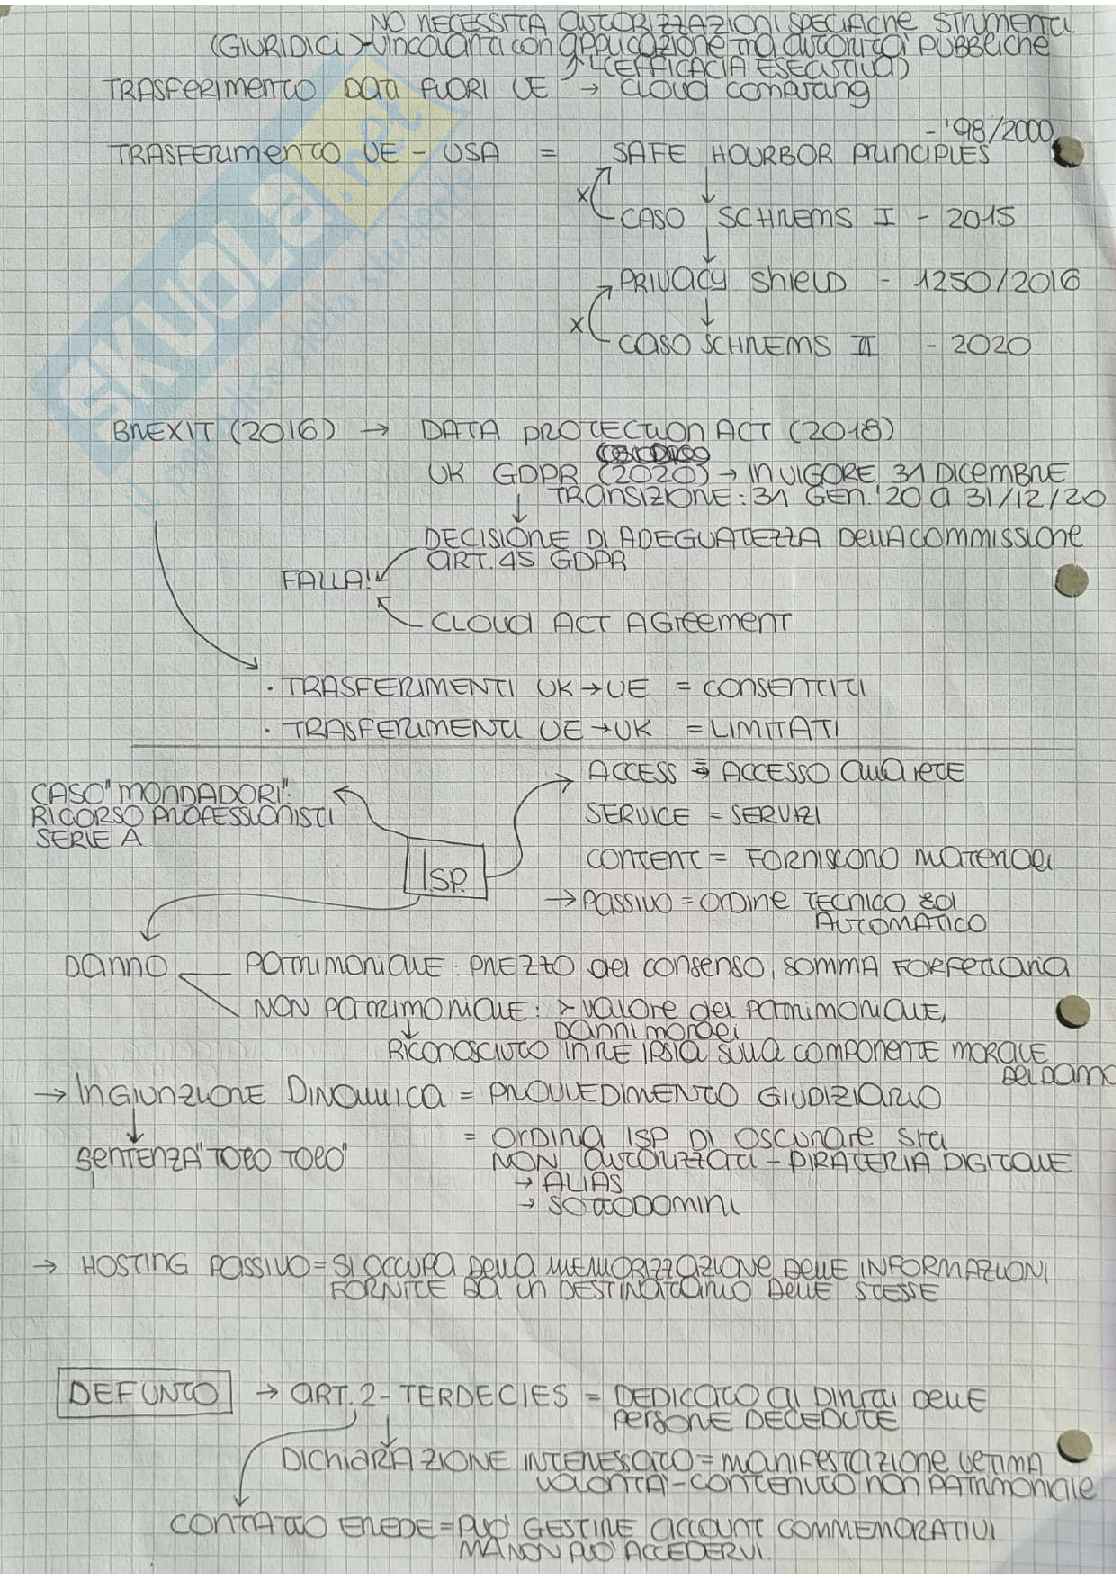 NO NECESSITÀ AUTORIZZAZIONI SPECIFICHE STRUMENTI
(GIURIDICI) VINCOLANTI CON APPLICAZIONE TRA AUTORITÀ PUBBLICHE
(EFFICACIA ESECUTIVA)
TRASFERIMENTO DATI FUORI UE → CLOUD
- '98/2000
TRASFERIMENTO UE - USA = SAFE HOURBOR PRINCIPLES
x
CASO SCHREMS I - 2015
PRIVACY SHIELD - 1250/2016
x
CASO SCHREMS II - 2020
BREXIT (2016) → DATA PROTECTION ACT (2018)
UK GDPR (2020) → IN VIGORE 31 DICEMBRE
TRANSIZIONE: 31 GEN.'20 A 31/12/20
DECISIONE DI ADEGUATEZZA DELLA COMMISSIONE
ART. 45 GDPR
FALLA!
CLOUD ACT AGREEMENT
· TRASFERIMENTI UK → UE = CONSENTITI
· TRASFERIMENTI UE → UK = LIMITATI
ACCESS = ACCESSO ALLA RETE
CASO "MONDADORI":
RICORSO PROFESSIONISTI
SERIE A
SERVICE = SERVIZI
CONTENT = FORNISCONO MATERIALI
ISP
→ PASSIVO = ORDINE TECNICO ED
AUTOMATICO
DANNO
PATRIMONIALE: PREZZO DEL CONSENSO, SOMMA FORFETTARIA
NON PATRIMONIALE: > VALORE DEL PATRIMONIALE,
DANNI MORALI
RICONOSCIUTO IN RE IPSIA SULLA COMPONENTE MORALE
DEL DANNO
→ INGIUNZIONE DINAMICA = PROVVEDIMENTO GIUDIZIARIO
= ORDINA ISP DI OSCURARE SITI
SENTENZA "TOPO TOPO"
NON AUTORIZZATI - PIRATERIA DIGITALE
→ ALIAS
→ SOTTODOMINI
→ HOSTING PASSIVO = SI OCCUPA DELLA MEMORIZZAZIONE DELLE INFORMAZIONI
FORNITE DA UN DESTINATARIO DELLE STESSE
DEFUNTO → ART. 2-TERDECIES = DEDICATO AI DIRITTI DELLE
PERSONE DECEDUTE
DICHIARAZIONE INTERESSATO = MANIFESTAZIONE ULTIMA
VOLONTÀ - CONTENUTO NON PATRIMONIALE
CONTATTO EREDE = PUÒ GESTIRE ACCOUNT COMMEMORATIVI
MA NON PUÒ ACCEDERVI.
SKUOLA.net